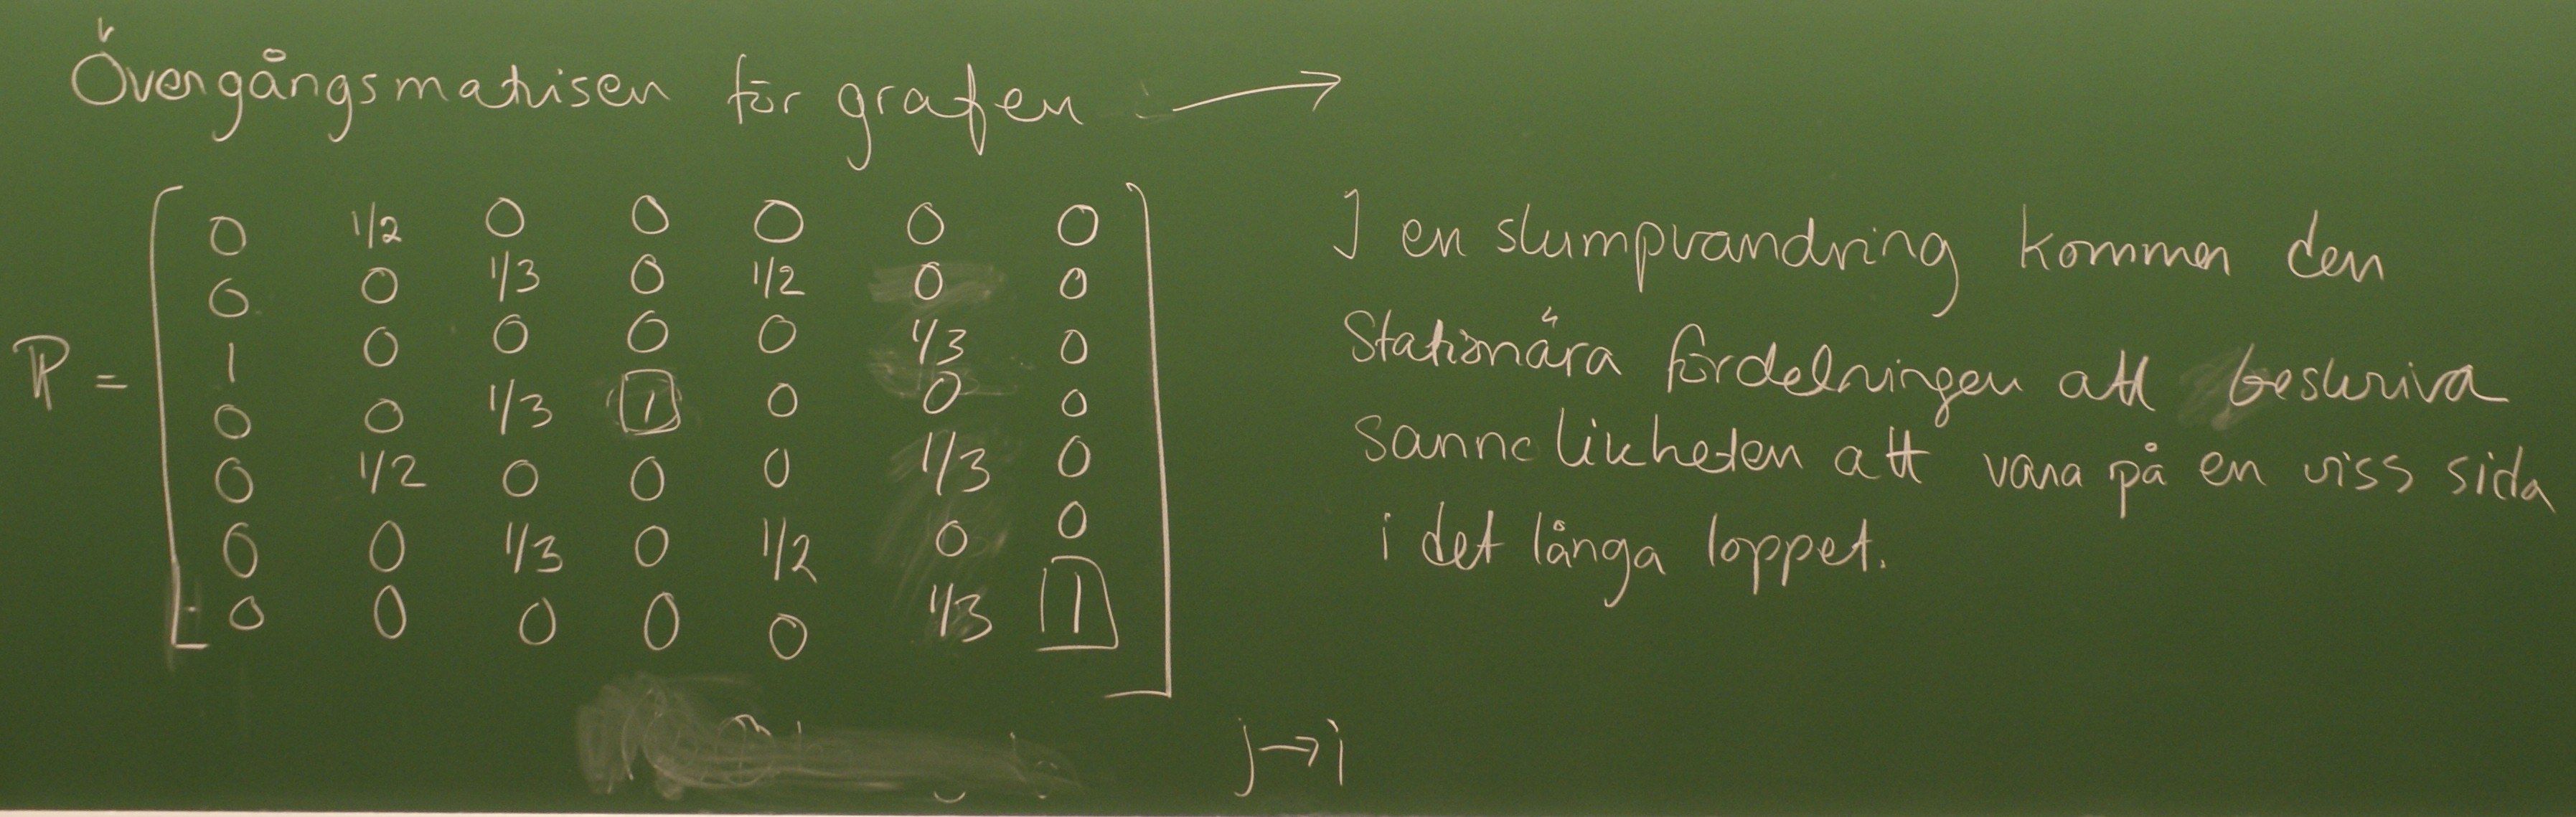 Övergångsmatrisen för grafen →
P = [ 0 1/2 0 0 0 0 0
0 0 1/3 0 1/2 0 0
1 0 0 0 0 1/3 0
0 0 1/3 1 0 0 0
0 1/2 0 0 0 1/3 0
0 0 1/3 0 1/2 0 0
0 0 0 0 0 1/3 1 ]
j→i
I en slumpvandring kommer den
stationära fördelningen att beskriva
sannolikheten att vara på en viss sida
i det långa loppet.